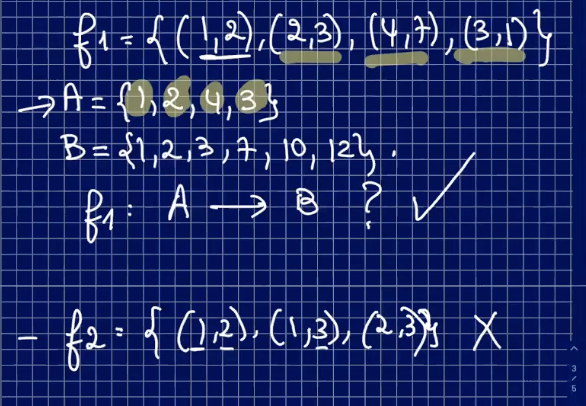 f1 = {(1,2),(2,3),(4,7),(3,1)}
→ A = {1,2,4,3}
B = {1,2,3,7,10,12}.
f1: A → B ? ✓
- f2 = {(1,2),(1,3),(2,3)} X
3/5